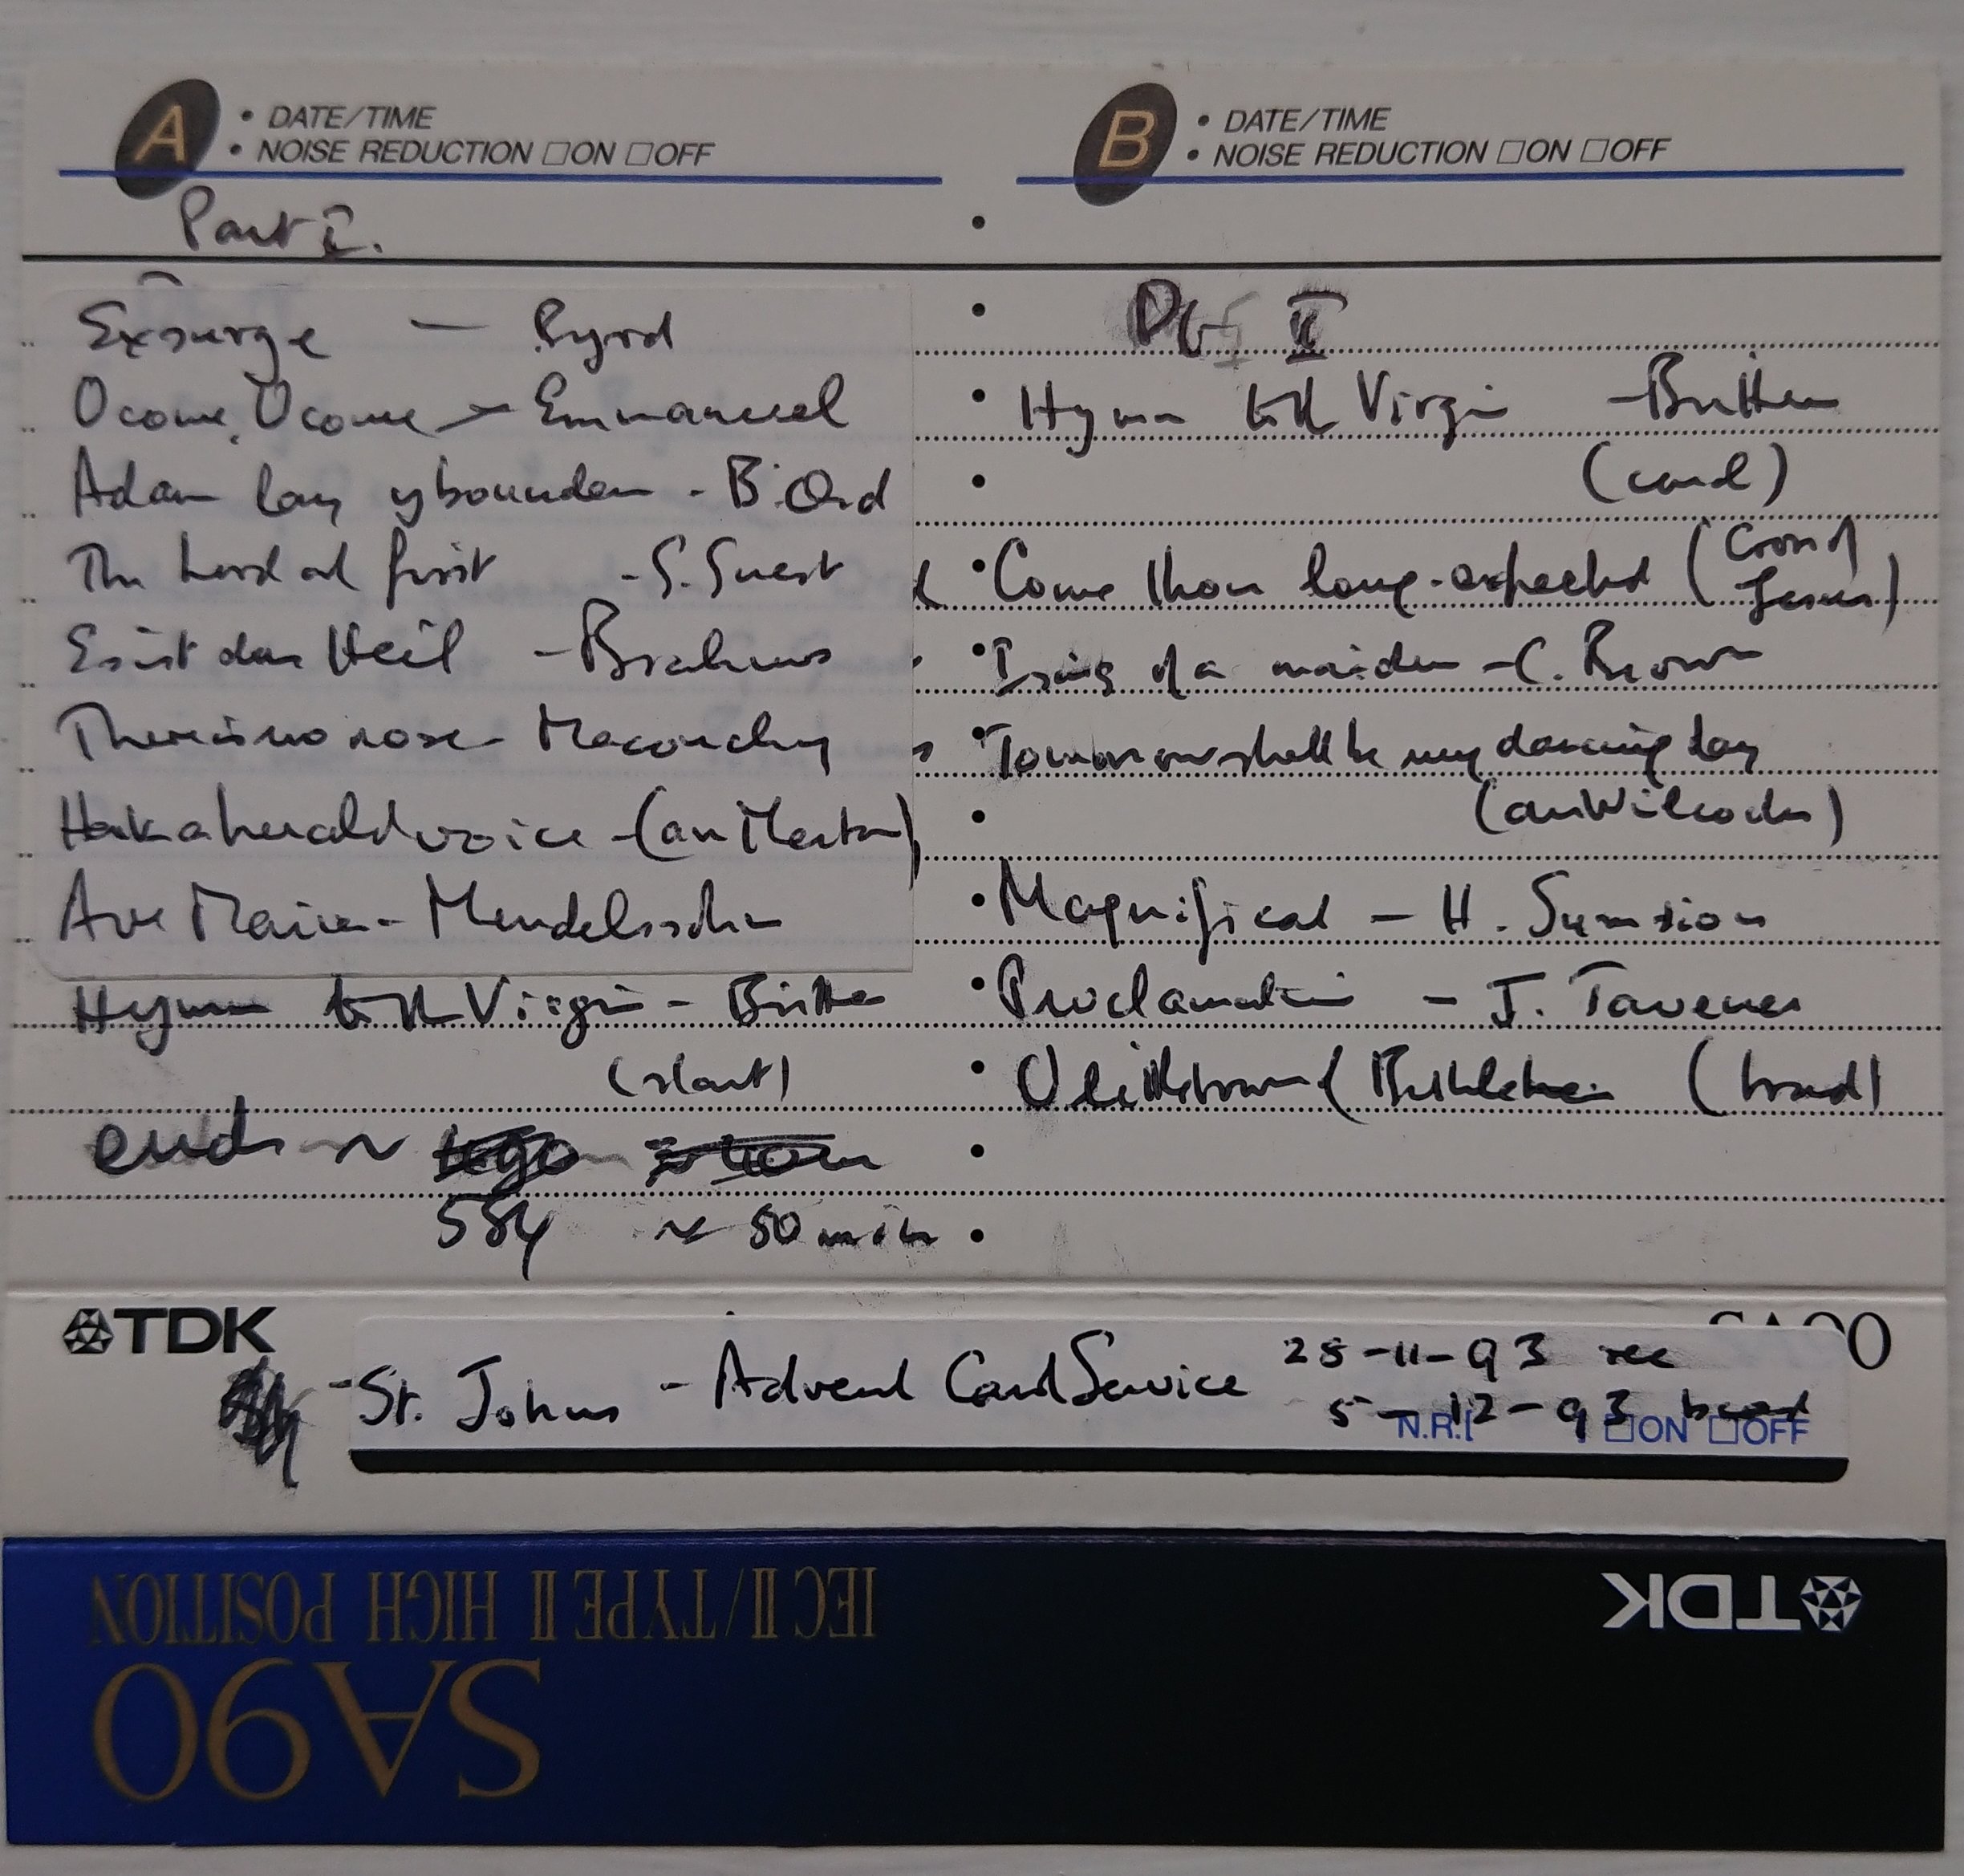 A
• DATE/TIME
• NOISE REDUCTION □ON □OFF
Part I.
Exsurge — Byrd
O come, O come — Emmanuel
Adam lay ybounden - B. Ord
The Lord at first - S. Guest
Es ist das Heil - Brahms
There is no rose - Maconchy
Hark a herald voice - (arr Marston)
Ave Maria - Mendelssohn
Hymn to the Virgin - Britten
(start)
ends ~
584 ~ 50 min
B
• DATE/TIME
• NOISE REDUCTION □ON □OFF
Pt II
Hymn to the Virgin - Britten
(concl)
Come thou long-expected (Cross of Jesus)
I sing of a maiden - C. Brown
Tomorrow shall be my dancing day
(arr Wilcocks)
Magnificat - H. Sumsion
Proclamation - J. Tavener
O little town of Bethlehem (trad)
TDK
St. Johns - Advent Carol Service 28-11-93 rec
5-12-93 broad
N.R. □ON □OFF
TDK
IEC II/TYPE II HIGH POSITION
SA90